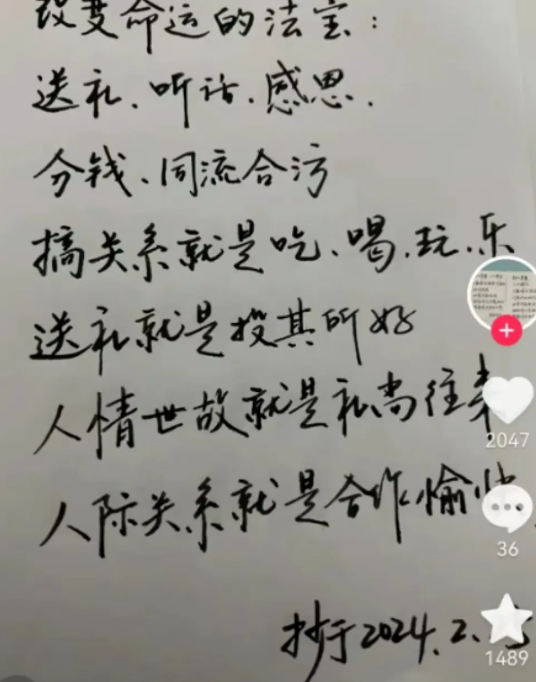 改变命运的法宝:
送礼、听话、感恩、
分钱、同流合污
搞关系就是吃、喝、玩、乐
送礼就是投其所好
人情世故就是礼尚往来
人际关系就是合作愉快
抄于2024.2.
2047
36
1489